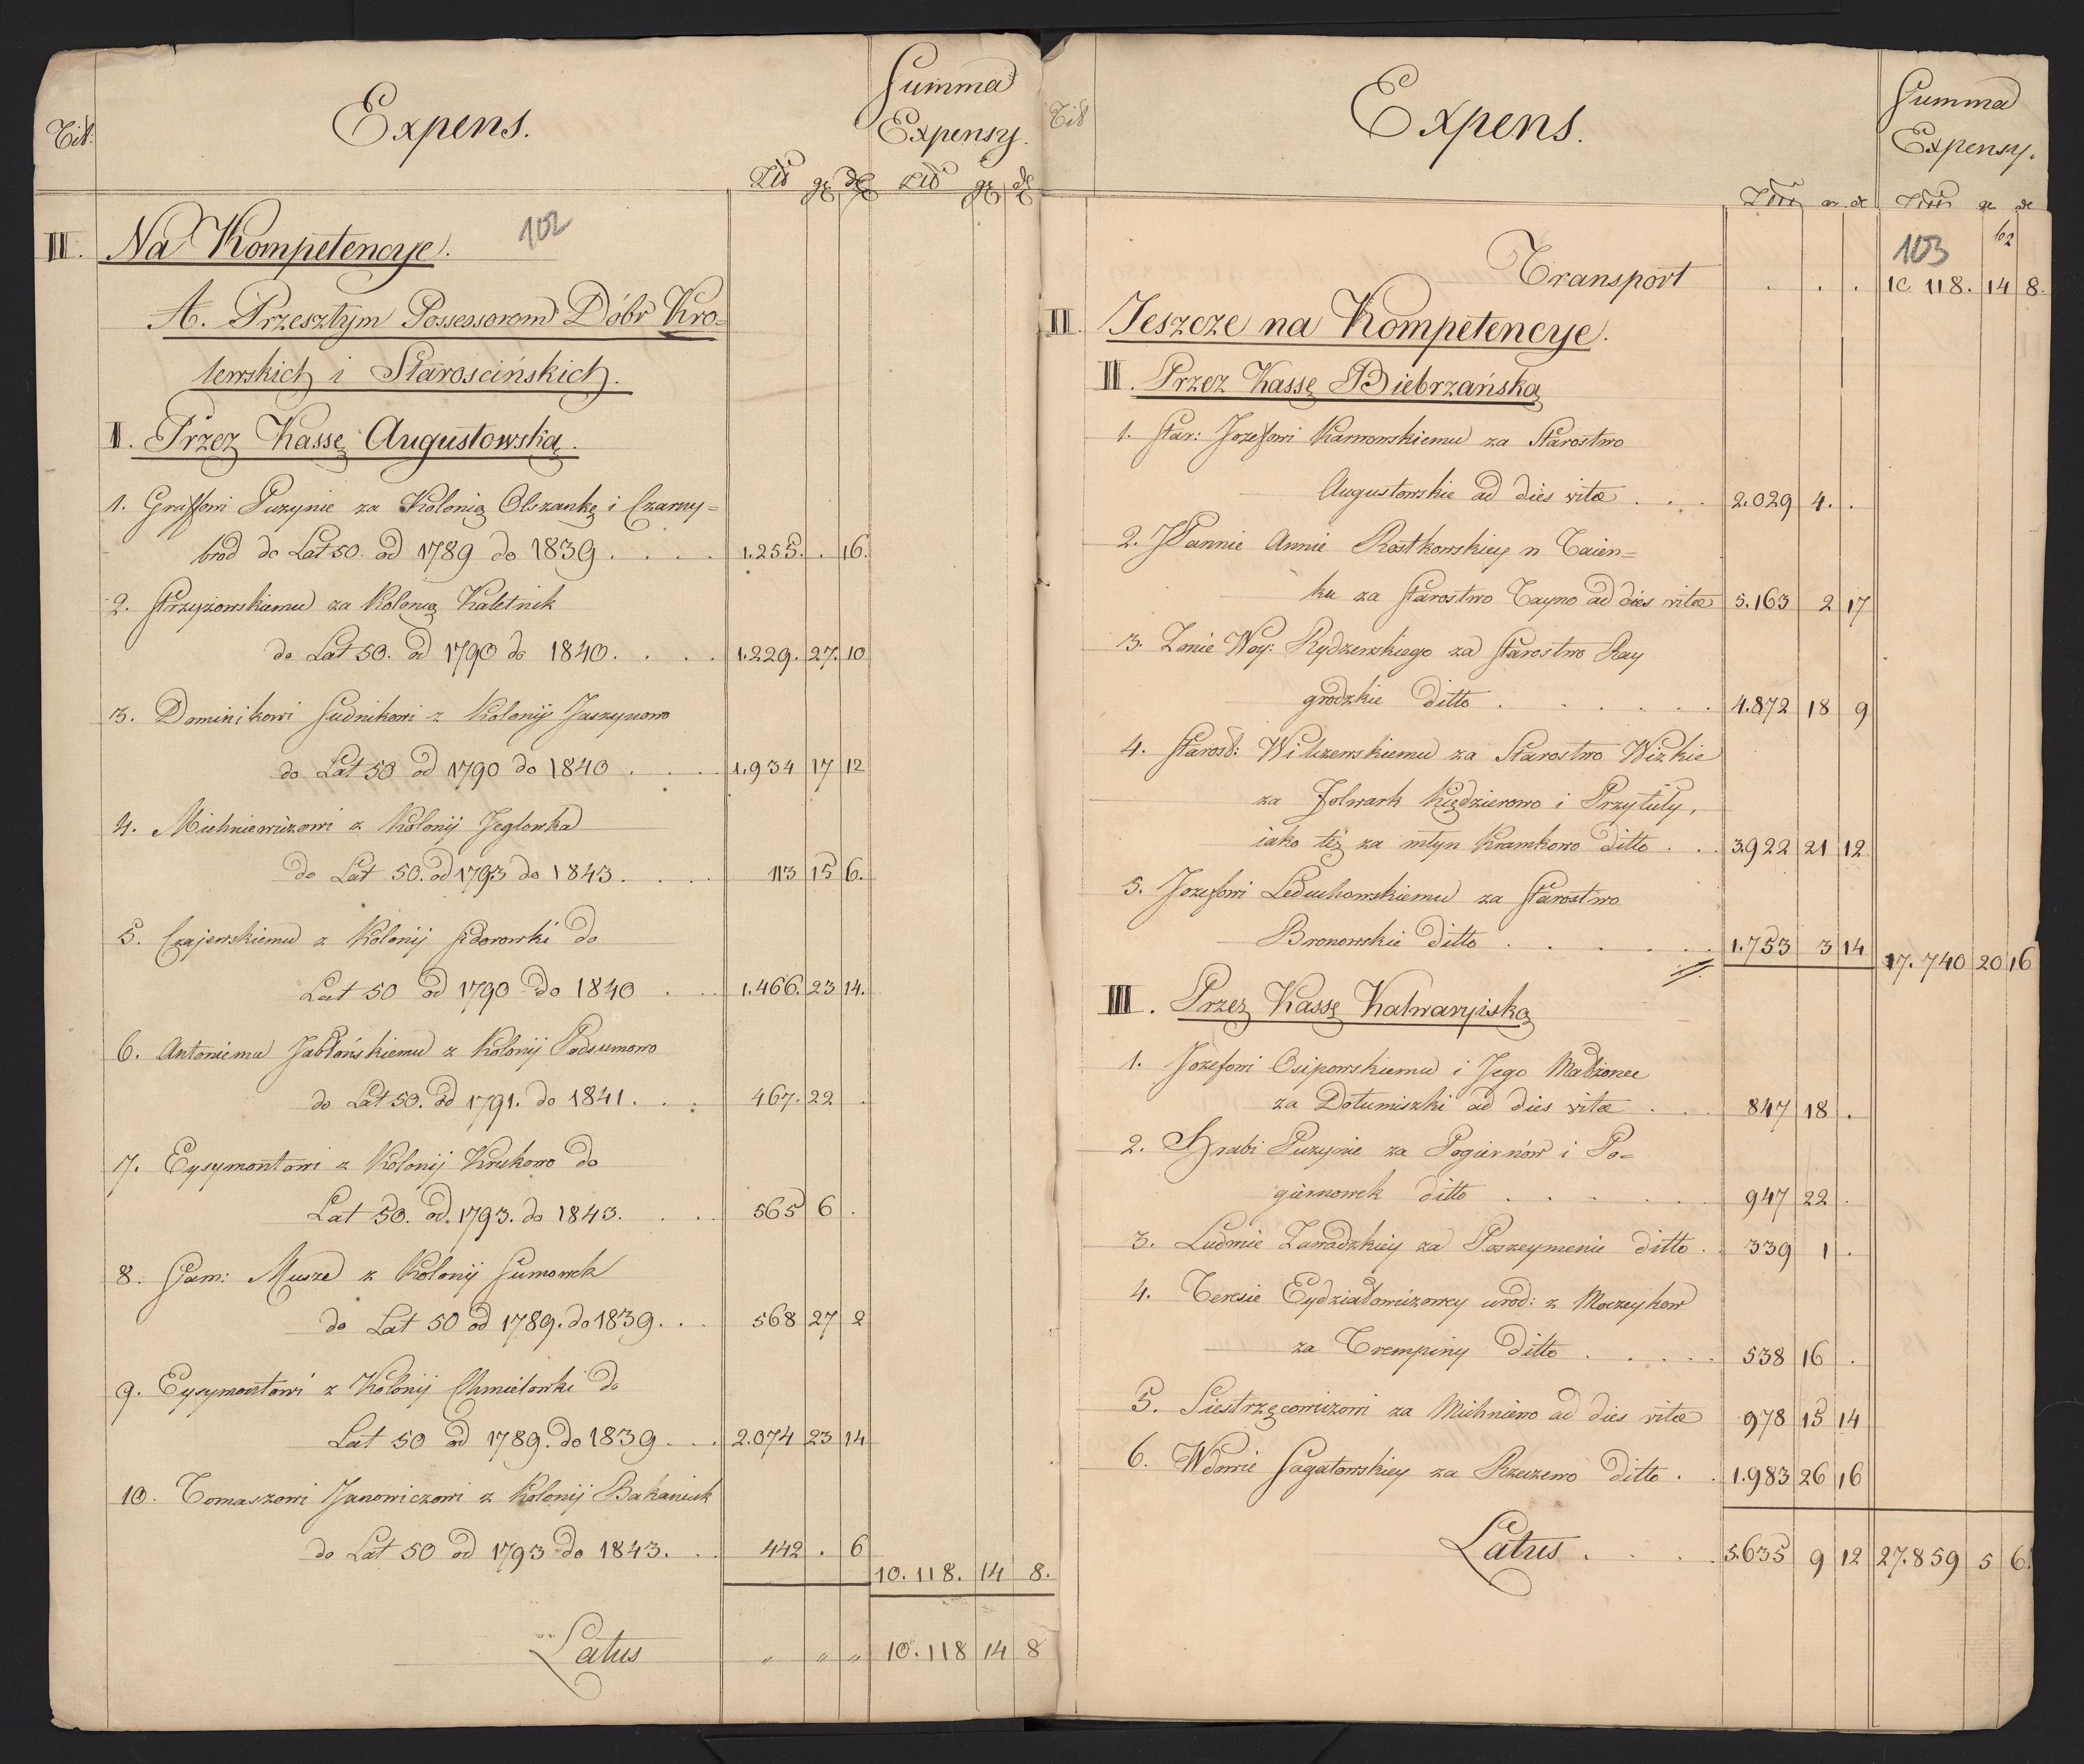 Tit:
Expens.
Summa
Expensy.
Złł gr dł Złł gr dł
102
II. Na Kompetencye.
A. Przeszłym Possessorom Dóbr Kro=
lewskich i Starościńskich.
I. Przez Kassę Augustowską.
1. Graffowi Puzynie za Kolonią Olszankę i Czarny=
brod do Lat 50. od 1789 do 1839 . . . . 1.255. . 16.
2. Strzyżowskiemu za Kolonią Kaletnik
do Lat 50. od 1790 do 1840. . . . 1.229. 27. 10
3. Dominikowi Sudnikowi z Kolonij Jaszynowo
do Lat 50 od 1790 do 1840 . . . 1.934 17 12
4. Michniewiczowi z Kolonij Jeglowka
do Lat 50. od 1793 do 1843. . . . 113 15 6.
5. Czajewskiemu z Kolonij Sidorowki do
Lat 50 od 1790 do 1840 . . . 1.466. 23 14.
6. Antoniemu Jabłońskiemu z Kolonij Podsumowo
do Lat 50. od 1791. do 1841. . . . 467. 22 .
7. Eysymontowi z Kolonij Krukowo do
Lat 50. od. 1793. do 1843. . . . 565 6 .
8. Sam: Musze z Kolonij Sumowek
do Lat 50 od 1789. do 1839. . . 568 27 2
9. Eysymontowi z Kolonij Chmielowki do
Lat 50 od 1789. do 1839 . . . 2.074 23 14
10. Tomaszowi Janowiczowi z Kolonij Bakaniuk
do Lat 50 od 1793 do 1843. . . 442 . 6
10.118. 14 8.
Latus " " " 10.118 14 8
Tit
Expens.
Summa
Expensy.
gr gr
62
103
Transport . . . 10 118. 14 8.
II. Jeszcze na Kompetencye.
II. Przez Kassę Biebrzańską
1. Star: Jozeffowi Karwowskiemu za Starostwo
Augustowskie ad dies vitæ . . . 2.029 4. .
2. JPannie Annie Rostkowskiey n Taien=
ku za Starostwo Tayno ad dies vitæ 5.163 2 17
3. Zonie Woy: Rydzewskiego za Starostwo Ray
grodzkie ditto . . . . . . 4.872 18 9
4. Starost: Wilczewskiemu za Starostwo Wizkie
za Folwark Kędzierowo i Przytuły,
iako też za młyn Kramkowo ditto . . . 3.922 21 12
5. Jozeffowi Leduchowskiemu za Starostwo
Bronowskie ditto . . . . . 1.753 3 14 17.740 20 16
III. Przez Kassę Kalwaryiską
1. Jozefowi Osipowskiemu i Jego Małżonce
za Dotumiszki ad dies vitæ . . . 847 18 .
2. Hrabi Puzynie za Pogiernów i Po=
giernowek ditto . . . . . 947 22 .
3. Ludwie Zawadzkiey za Poszeymenie ditto . 339 1 .
4. Teresie Eydziadowiczowey urod: z Moczeykow
za Trempiny ditto . . . . 538 16 .
5. Siestrzęcowiczowi za Michniewo ad dies vitæ 978 15 14
6. Wdowie Sagatowskiey za Rzeczewo ditto . . 1.983 26 16
Latus . . . . 5.635 9 12 27.859 5 6.